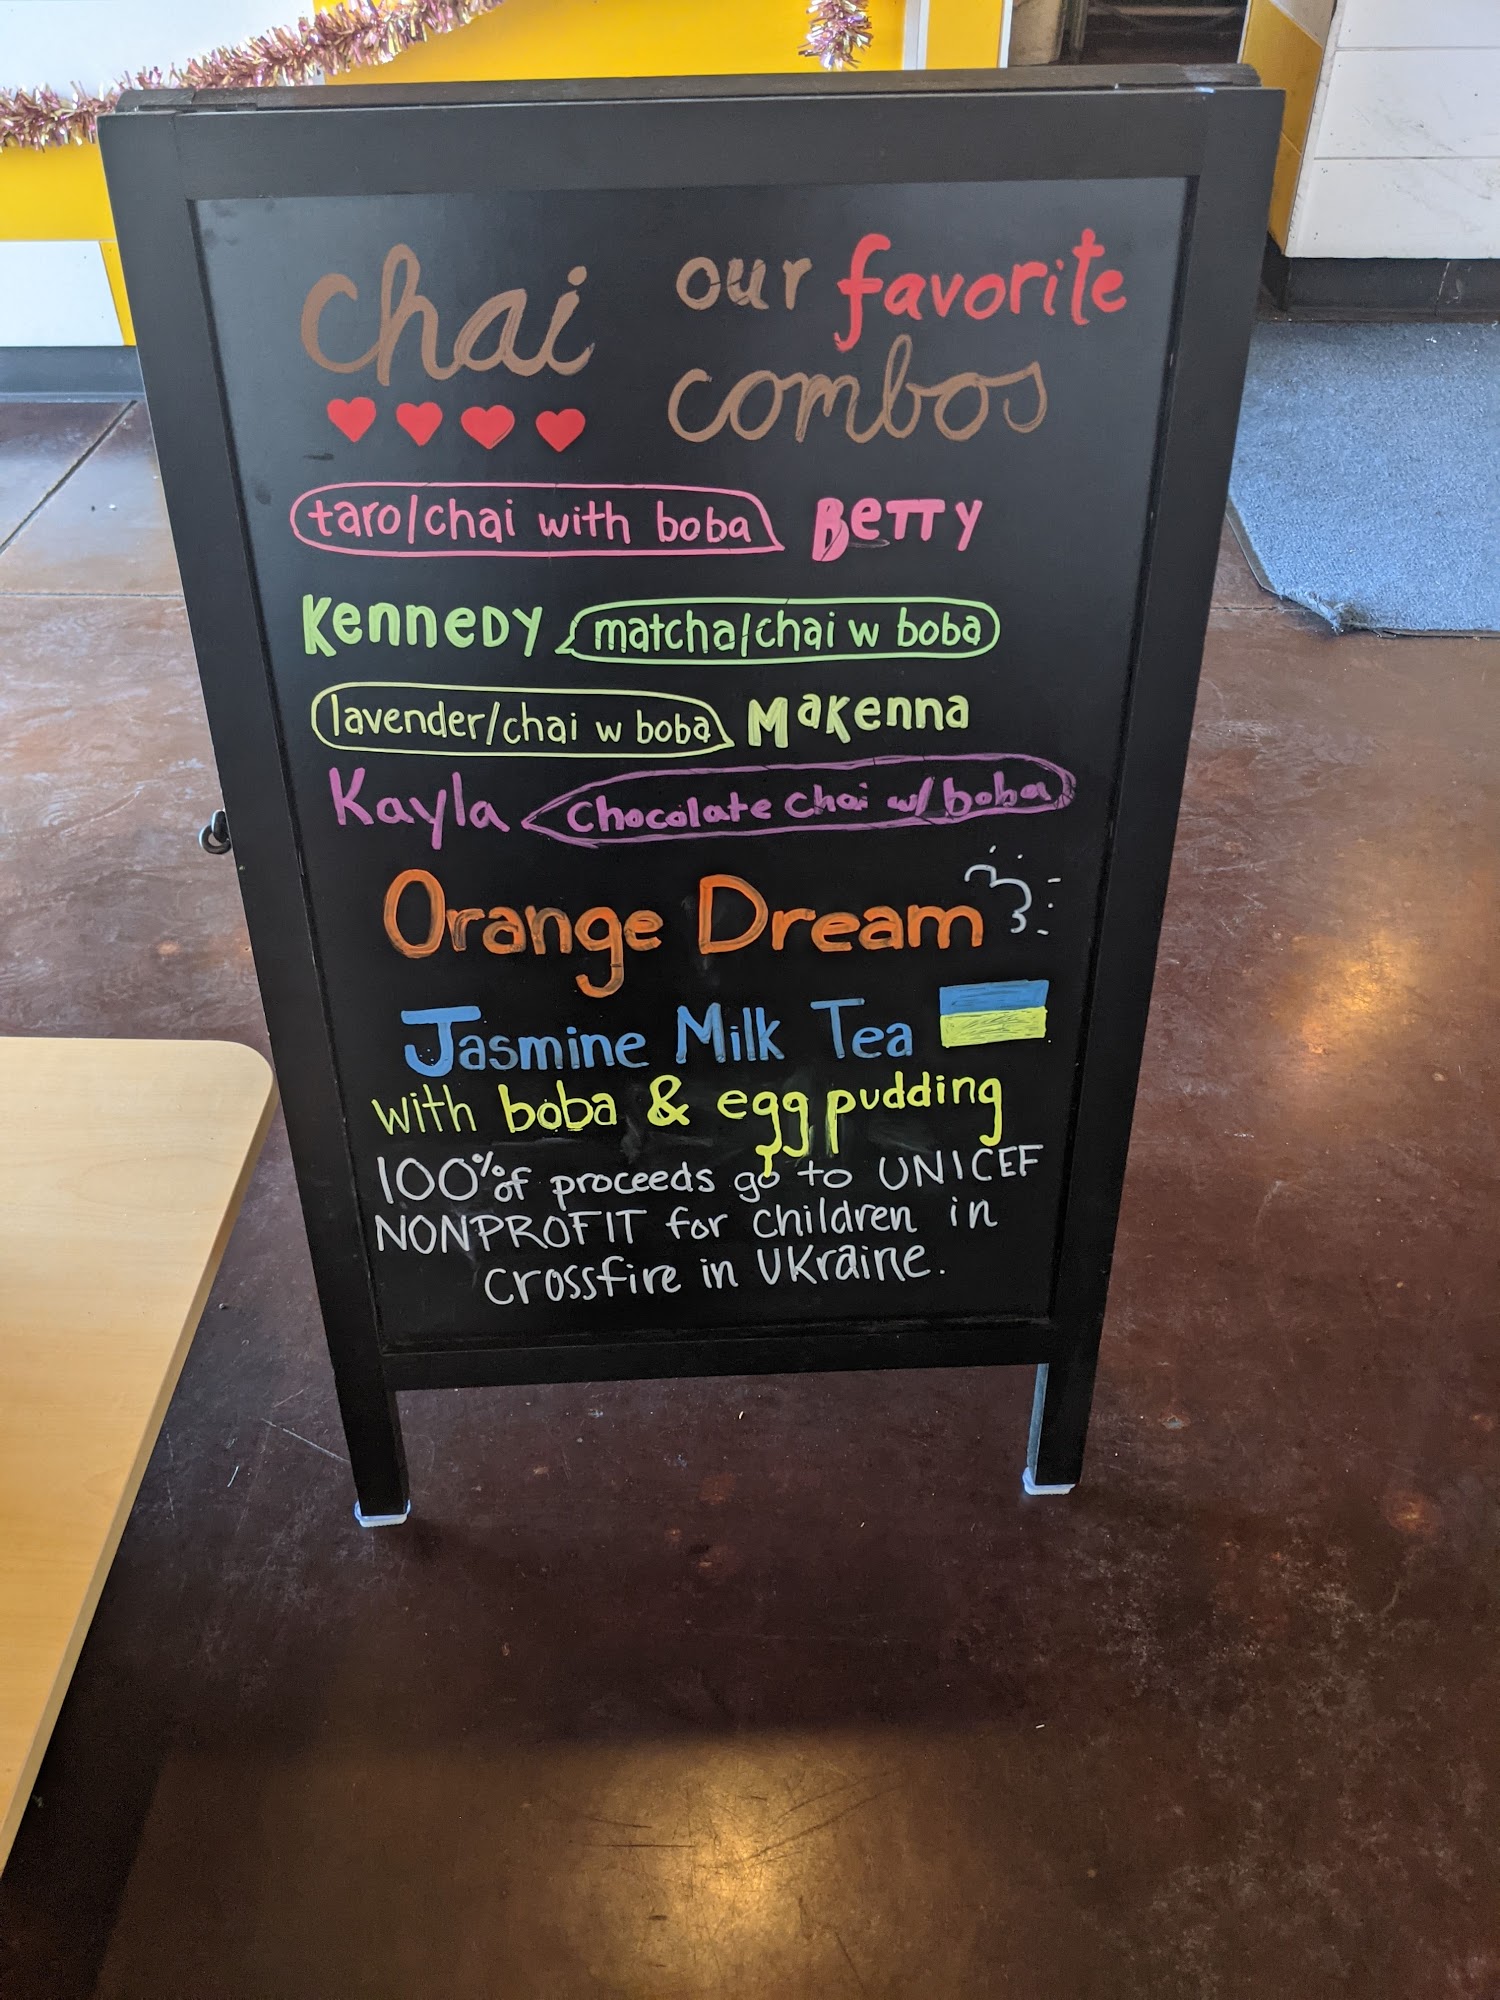 chai
our favorite
combos
taro/chai with boba Betty
Kennedy matcha/chai w boba
lavender/chai w boba Makenna
Kayla Chocolate Chai w/ boba
Orange Dream
Jasmine Milk Tea
with boba & egg pudding
100% of proceeds go to UNICEF
NONPROFIT for children in
crossfire in Ukraine.